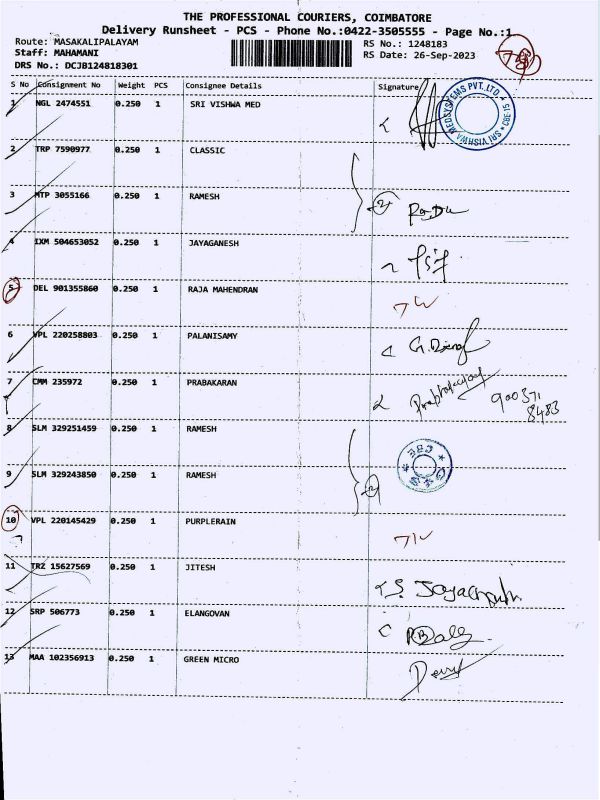 THE PROFESSIONAL COURIERS, COIMBATORE
Delivery Runsheet - PCS - Phone No.:0422-3505555 - Page No.:1
Route: MASAKALIPALAYAM
RS No.: 1248183
Staff: MAHAMANI
RS Date: 26-Sep-2023
DRS No.: DCJB124818301
S No Consignment No Weight PCS Consignee Details Signature
1 NGL 2474551 0.250 1 SRI VISHWA MED
SRI VISHWA MEDSYSTEMS PVT.LTD. CBE-15
2 TRP 7590977 0.250 1 CLASSIC
3 MTP 3055166 0.250 1 RAMESH
4 IXM 504653052 0.250 1 JAYAGANESH
5 DEL 901355860 0.250 1 RAJA MAHENDRAN
6 VPL 220258803 0.250 1 PALANISAMY
7 CMM 235972 0.250 1 PRABAKARAN
900371
8483
8 SLM 329251459 0.250 1 RAMESH
9 SLM 329243850 0.250 1 RAMESH
10 VPL 220145429 0.250 1 PURPLERAIN
11 TRZ 15627569 0.250 1 JITESH
12 SRP 506773 0.250 1 ELANGOVAN
13 MAA 102356913 0.250 1 GREEN MICRO